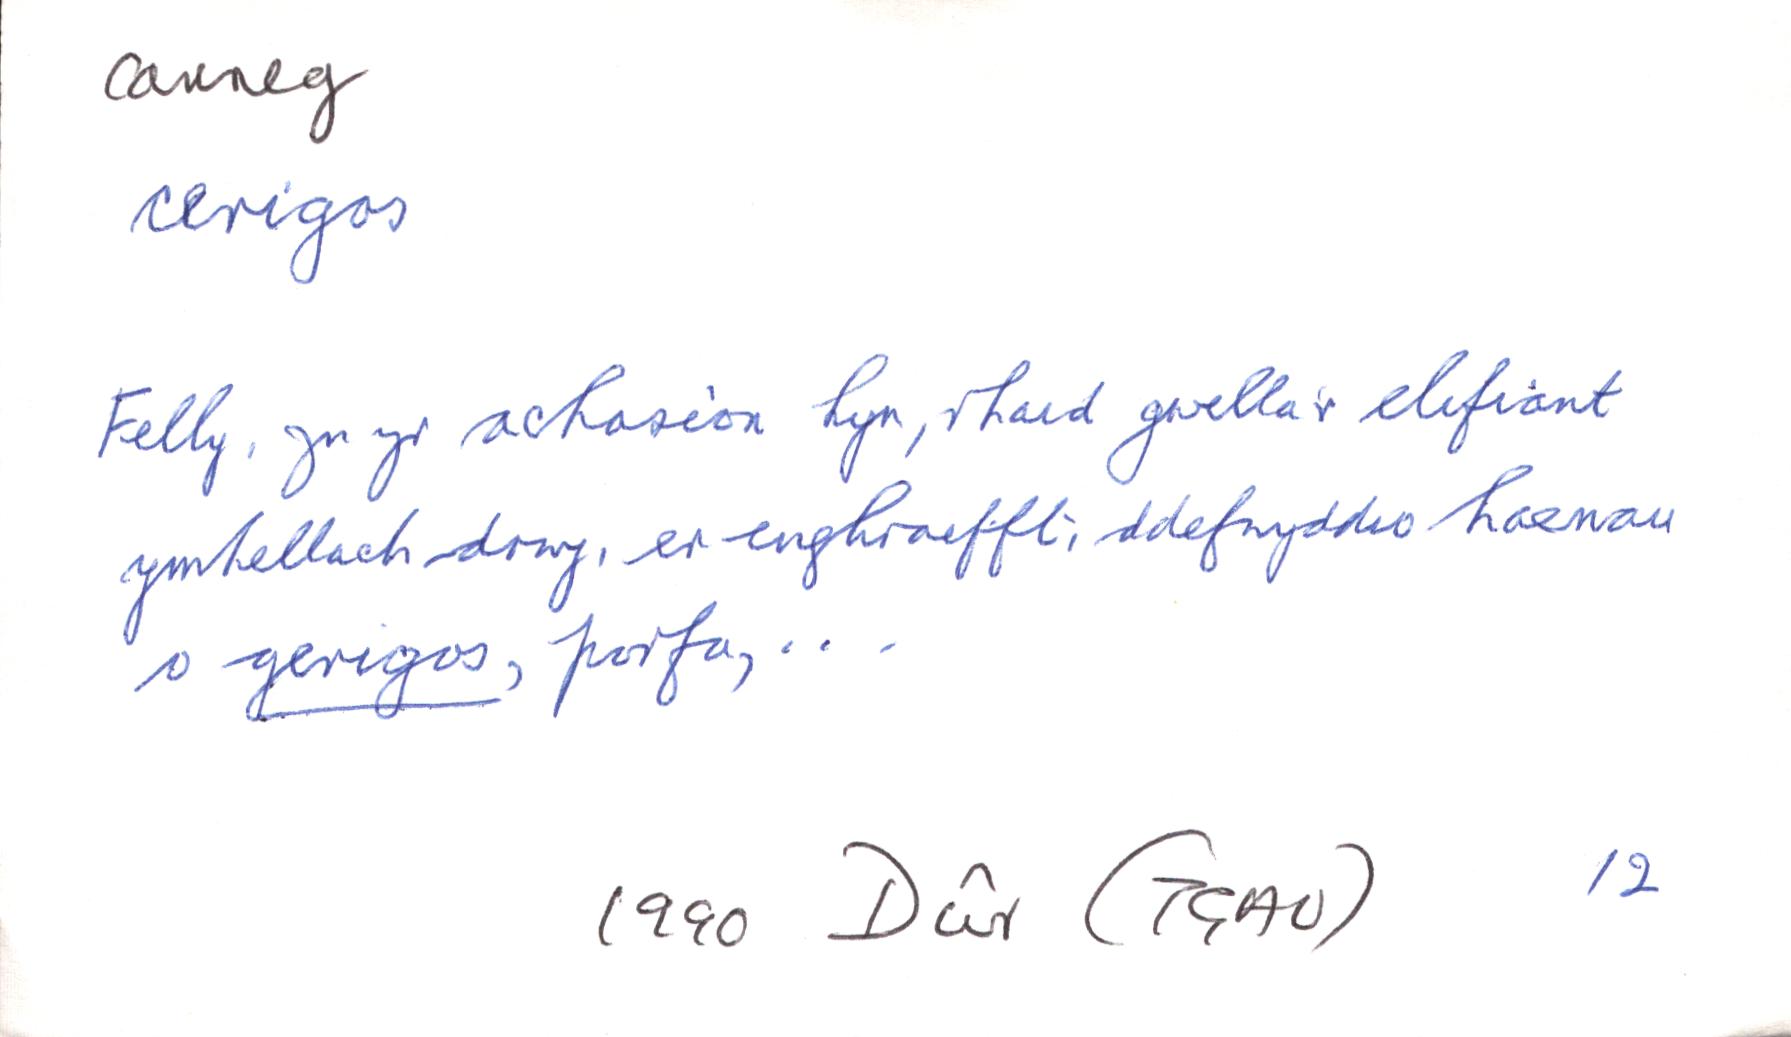 carreg
cerigos
Felly, yn yr achosion hyn, rhaid gwella'r elifiant
ymhellach drwy, er enghraifft, ddefnyddio haenau
o gerigos, porfa, ...
1990 Dŵr (TGAU) 12